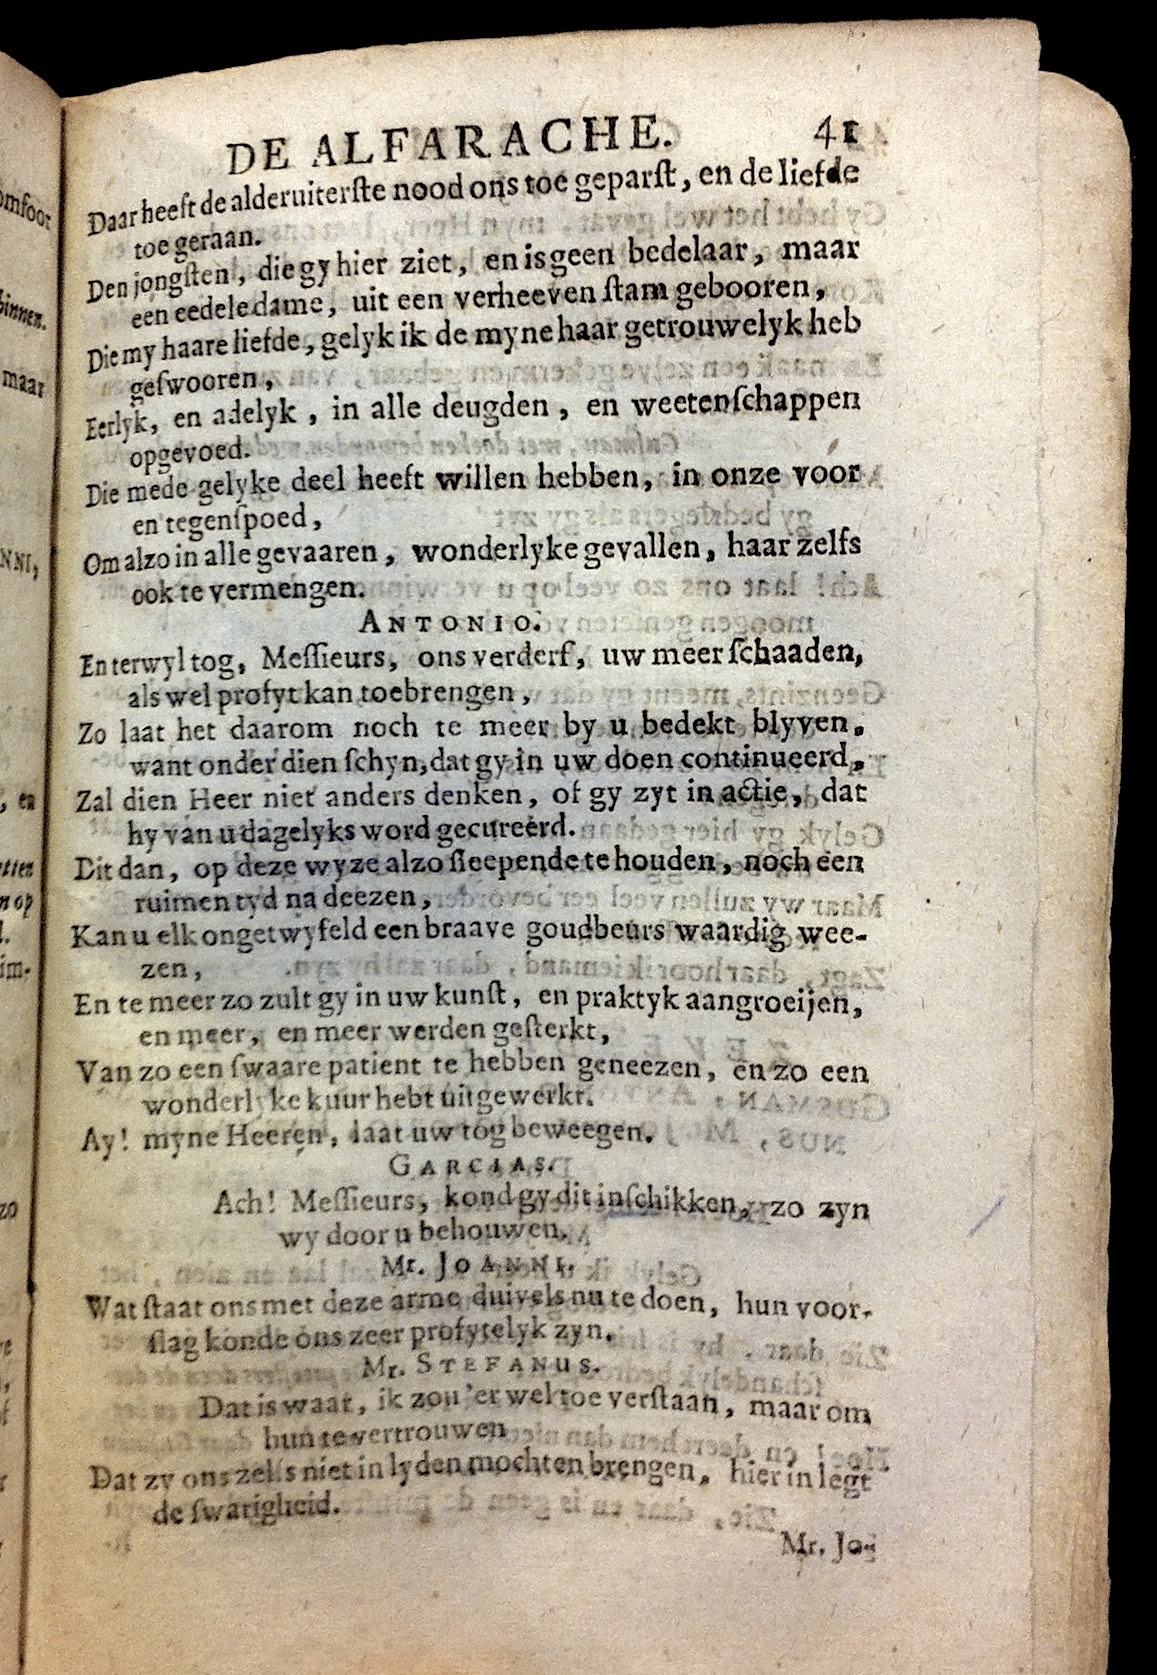 DE ALFARACHE. 41
Daar heeft de alderuiterſte nood ons toe geparſt, en de liefde
toe geraan.
Den jongſten, die gy hier ziet, en is geen bedelaar, maar
een eedele dame, uit een verheeven ſtam gebooren,
Die my haare liefde, gelyk ik de myne haar getrouwelyk heb
geſwooren,
Eerlyk, en adelyk, in alle deugden, en weetenſchappen
opgevoed.
Die mede gelyke deel heeft willen hebben, in onze vóor
en tegenſpoed,
Om alzo in alle gevaaren, wonderlyke gevallen, haar zelfs
ook te vermengen.
ANTONIO.
En terwyl tog, Meſſieurs, ons verderf, uw meer ſchaaden,
als wel profyt kan toebrengen,
Zo laat het daarom noch te meer by u bedekt blyven,
want onder dien ſchyn, dat gy in uw doen continueerd,
Zal dien Heer niet anders denken, of gy zyt in actie, dat
hy van u dagelyks word gecureerd.
Dit dan, op deze wyze alzo ſleepende te houden, noch een
ruimen tyd na deezen,
Kan u elk ongetwyfeld een braave goudbeurs waardig wee-
zen,
En te meer zo zult gy in uw kunſt, en praktyk aangroeijen,
en meer, en meer werden geſterkt,
Van zo een ſwaare patient te hebben geneezen, en zo een
wonderlyke kuur hebt uitgewerkt.
Ay! myne Heeren, laat uw tog beweegen.
GARCIAS.
Ach! Meſſieurs, kond gy dit inſchikken, zo zyn
wy door u behouwen.
Mr. JOANNI.
Wat ſtaat ons met deze arme duivels nu te doen, hun voor-
ſlag konde ons zeer profytelyk zyn.
Mr. STEFANUS.
Dat is waar, ik zou 'er wel toe verſtaan, maar om
hun te vertrouwen
Dat zy ons zelfs niet in lyden mochten brengen, hier in legt
de ſwarigheid.
Mr. Jo-